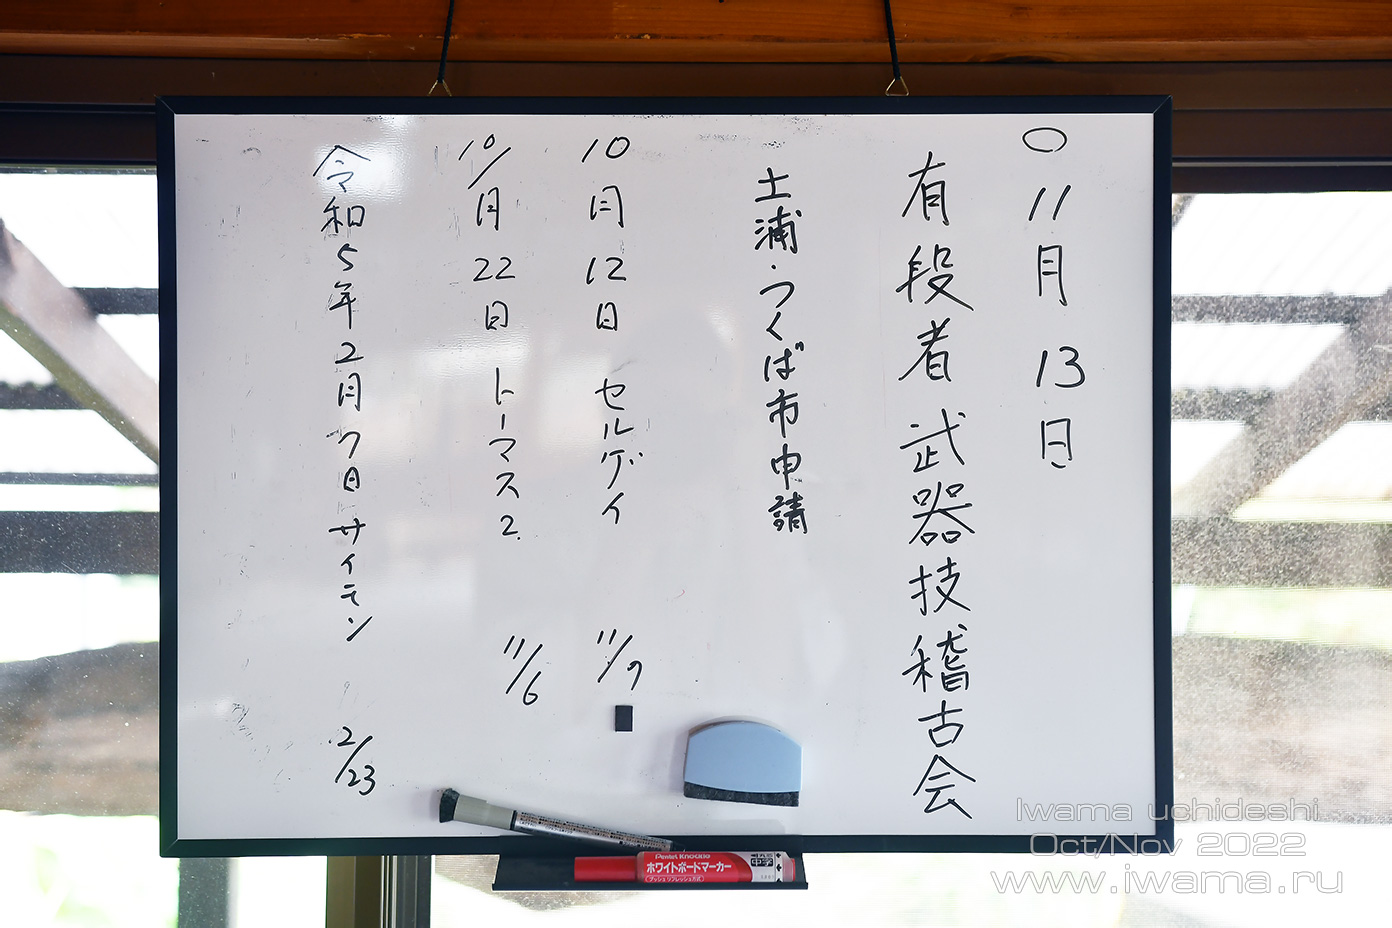 ○ 11月 13日
有段者 武器技稽古会
土浦・つくば市申請
10月 12日 セルゲイ 11/9
10/月 22日 トーマス2. 11/6
令和5年2月7日 サイモン 2/23
Pentel Knockle
ホワイトボードマーカー
プッシュリフレッシュ方式
中字
Iwama uchideshi
Oct/Nov 2022
www.iwama.ru